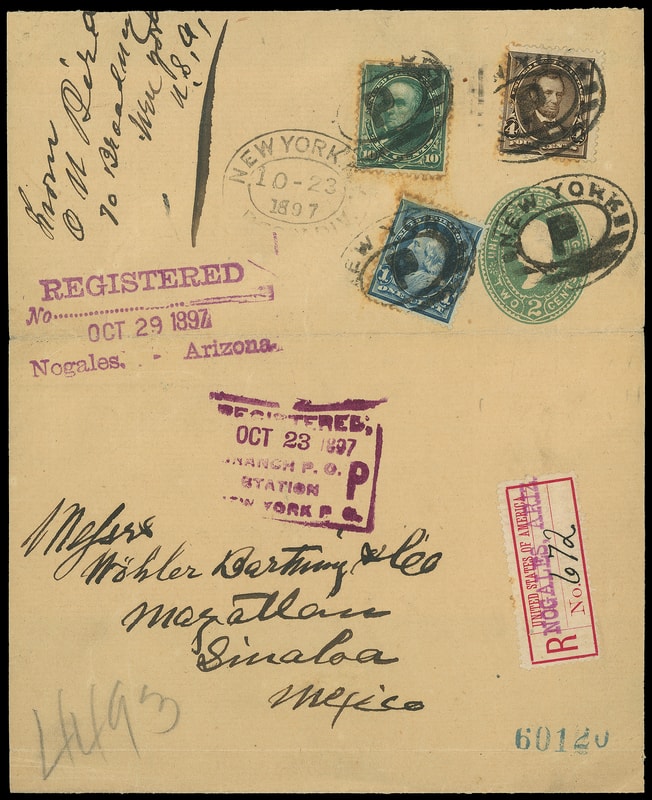 From
O N Bird
70 Broadway
New York
U.S.A.
10
10
4
NEW YORK, N.
10-23
1897
1
1
ONE CENT
NEW YORK
P
UNITED STATES
TWO
2
CENTS
REGISTERED
No.
OCT 29 1897
Nogales, Arizona.
REGISTERED,
OCT 23 1897
BRANCH P. O.
STATION P
NEW YORK P. O.
Messrs
Wöhler Bartning & Co
Mazatlan
Sinaloa
Mexico
UNITED STATES OF AMERICA.
NOGALES, ARIZ.
R No. 672
4493
60120